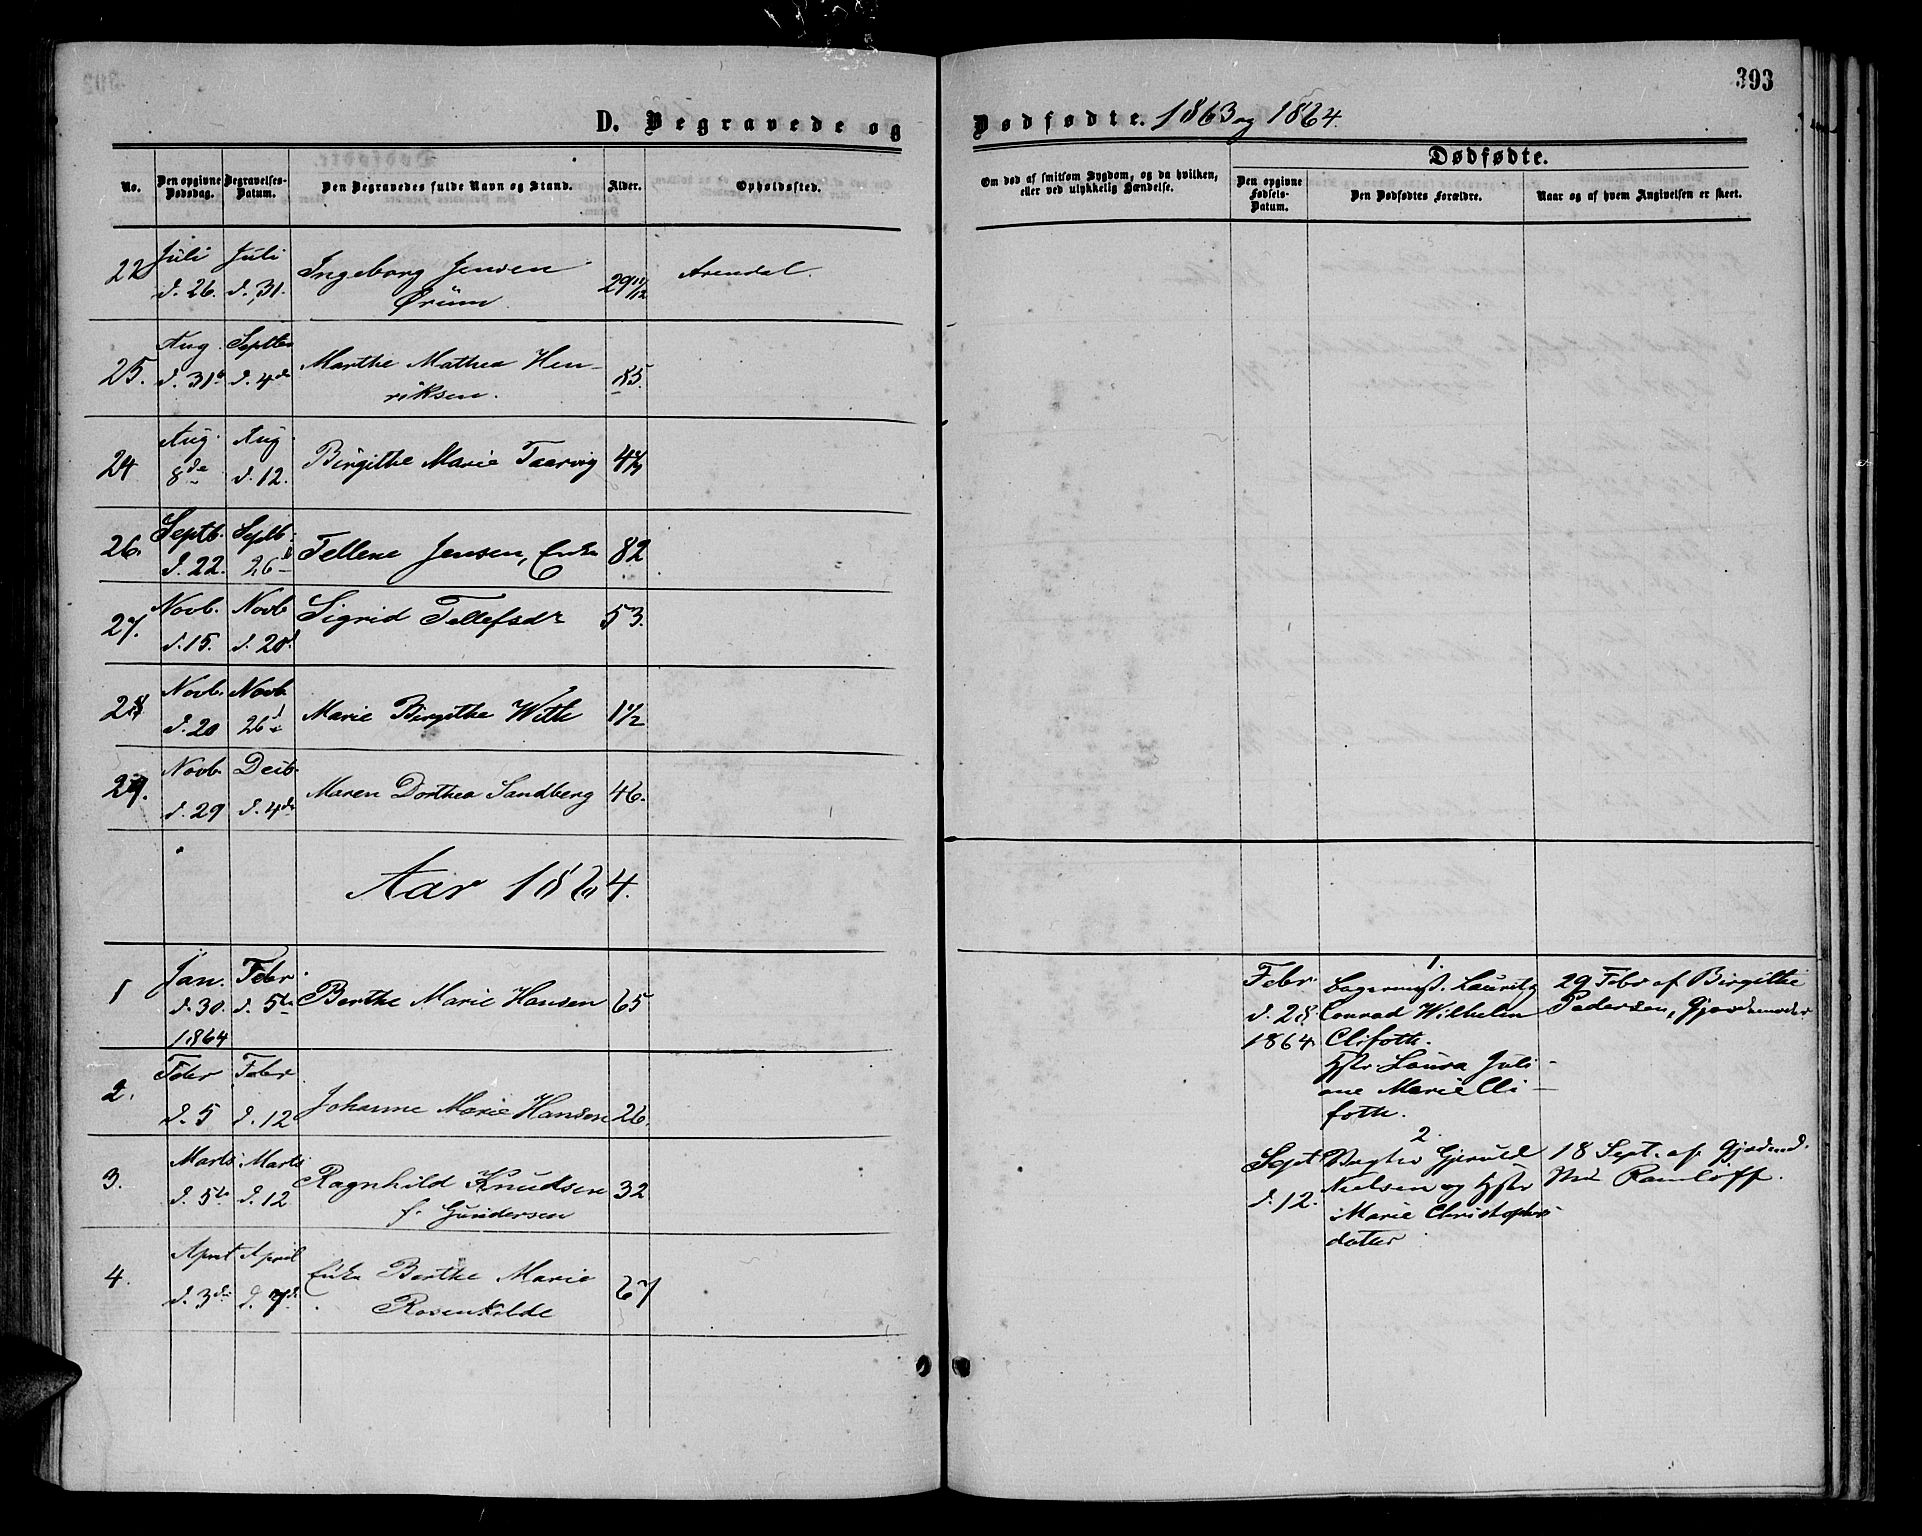 393
D. Begravede og
Dødfødte. 1863 og 1864.
No.
Den opgivne Dødsdag.
Begravelses-Datum.
Den Begravedes fulde Navn og Stand.
Alder.
Opholdssted.
Om død af smitsom Sygdom, og da hvilken, eller ved ulykkelig Hændelse.
Dødfødte.
Den opgivne Fødsels-Datum.
Den Dødfødtes Forældre.
Naar og af hvem Angivelsen er skeet.
22 Juli d. 26. Juli d. 31. Ingeborg Jensen 29 11/12 Arendal.
Ørum
25. Aug. d. 31 Septbr d. 4de Marthe Mathea Hen-
riksen. 85.
24 Aug. 8de Aug. d. 12. Birgithe Marie Taarvig
26. Septb. d. 22. Septb. 26 Tellene Jensen, Enke 82
27. Novb. d. 15. Novb d. 20. Sigrid Tellefsdr 53.
28 Novb. d. 20 Novb. 26 Marie Birgithe With 1 1/2
29. Novb. d. 29 Decb. d. 4de Maren Dorthea Sandberg 46.
Aar 1864.
1 Jan. d. 30. 1864 Febr. d. 5te Berthe Marie Hansen 65
2. Febr d. 5 Febr. d. 12 Johanne Marie Hansen 26.
3. Marts d. 5te Marts d. 12 Ragnhild Knudsen 32
f. Gundersen
4. April d. 3de April d. 7de Enke Berthe Marie 67
Rosenkilde
1.
Febr d. 28 1864 Lauritz
Conrad Wilhelm
Clifoth.
Hstr. Laura Juli-
ane Marie Cli-
foth.
29 Febr af Birgithe
Pedersen, Gjordemoder
2.
Sept d. 12. Gjeruld
Nielsen og Hstr
Marie Christophers-
datter
18 Sept. af Gjordemd.
Ramløff.